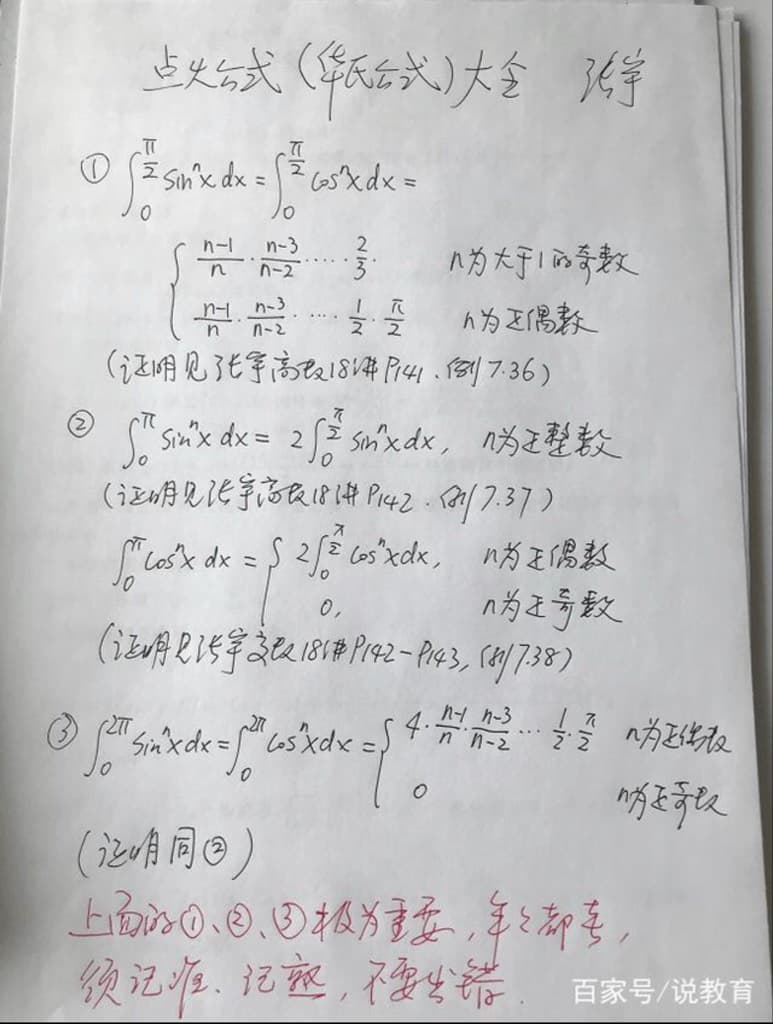 点火公式(华氏公式)大全 张宇
① ∫₀^{π/2} sinⁿx dx = ∫₀^{π/2} cosⁿx dx =
{ (n-1)/n · (n-3)/(n-2) · ···· 2/3 · n为大于1的奇数
(n-1)/n · (n-3)/(n-2) · ···· 1/2 · π/2 n为正偶数
(证明见张宇高数18讲P141.例7.36)
② ∫₀^π sinⁿx dx = 2∫₀^{π/2} sinⁿx dx, n为正整数
(证明见张宇高数18讲P142.例7.37)
∫₀^π cosⁿx dx = { 2∫₀^{π/2} cosⁿx dx, n为正偶数
0, n为正奇数
(证明见张宇高数18讲P142-P143,例7.38)
③ ∫₀^{2π} sinⁿx dx = ∫₀^{2π} cosⁿx dx = { 4 · (n-1)/n · (n-3)/(n-2) ··· 1/2 · π/2 n为正偶数
0 n为正奇数
(证明同②)
上面的①、②、③极为重要,年年都考,
须记准、记熟,不要出错.
百家号/说教育